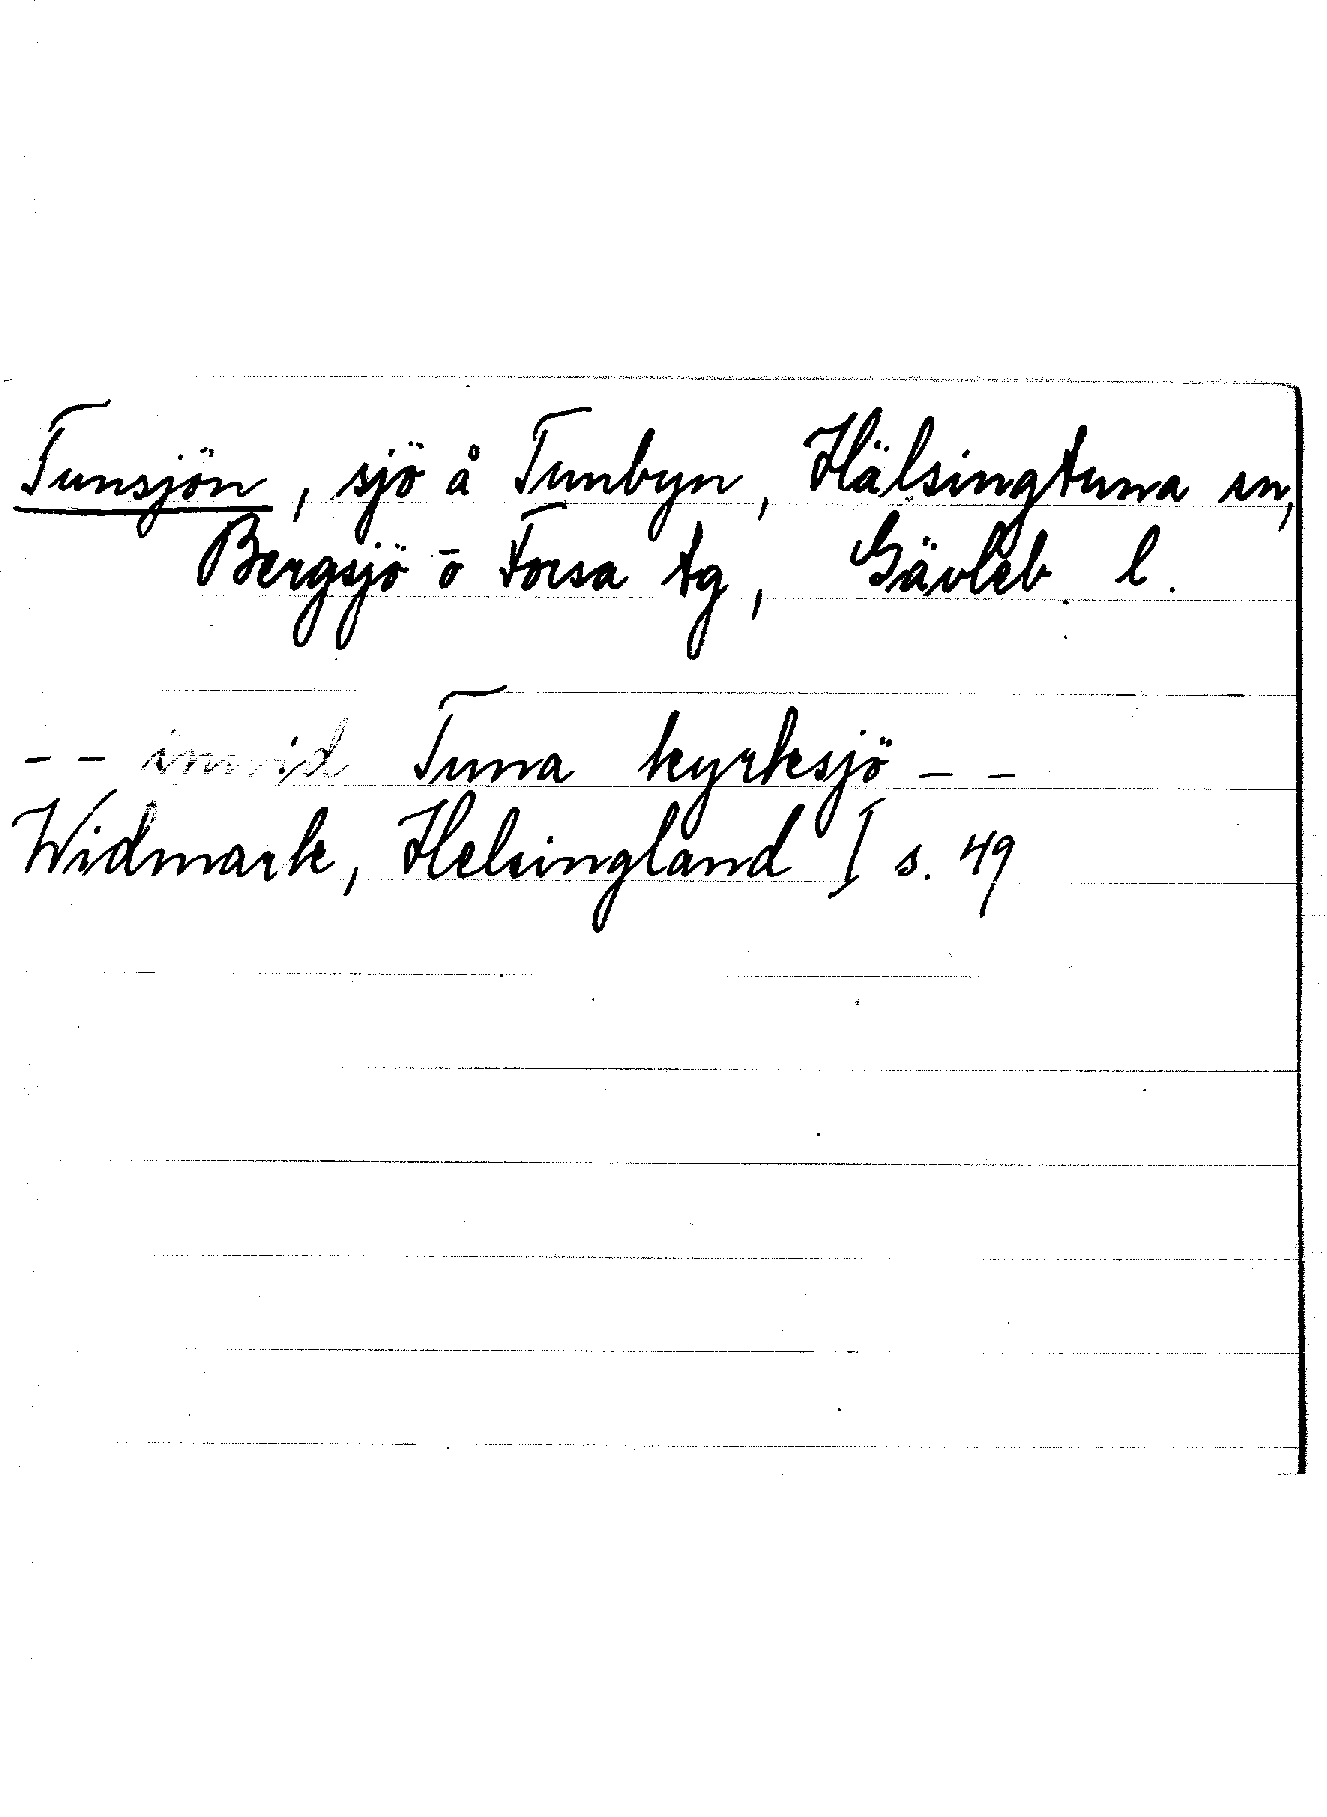 Tunsjön, sjö å Tunbyn, Hälsingtuna sn,
Bergsjö o Forsa tg, Gävleb. l.
-- invid Tuna kyrksjö --
Widmark, Helsingland I s. 49